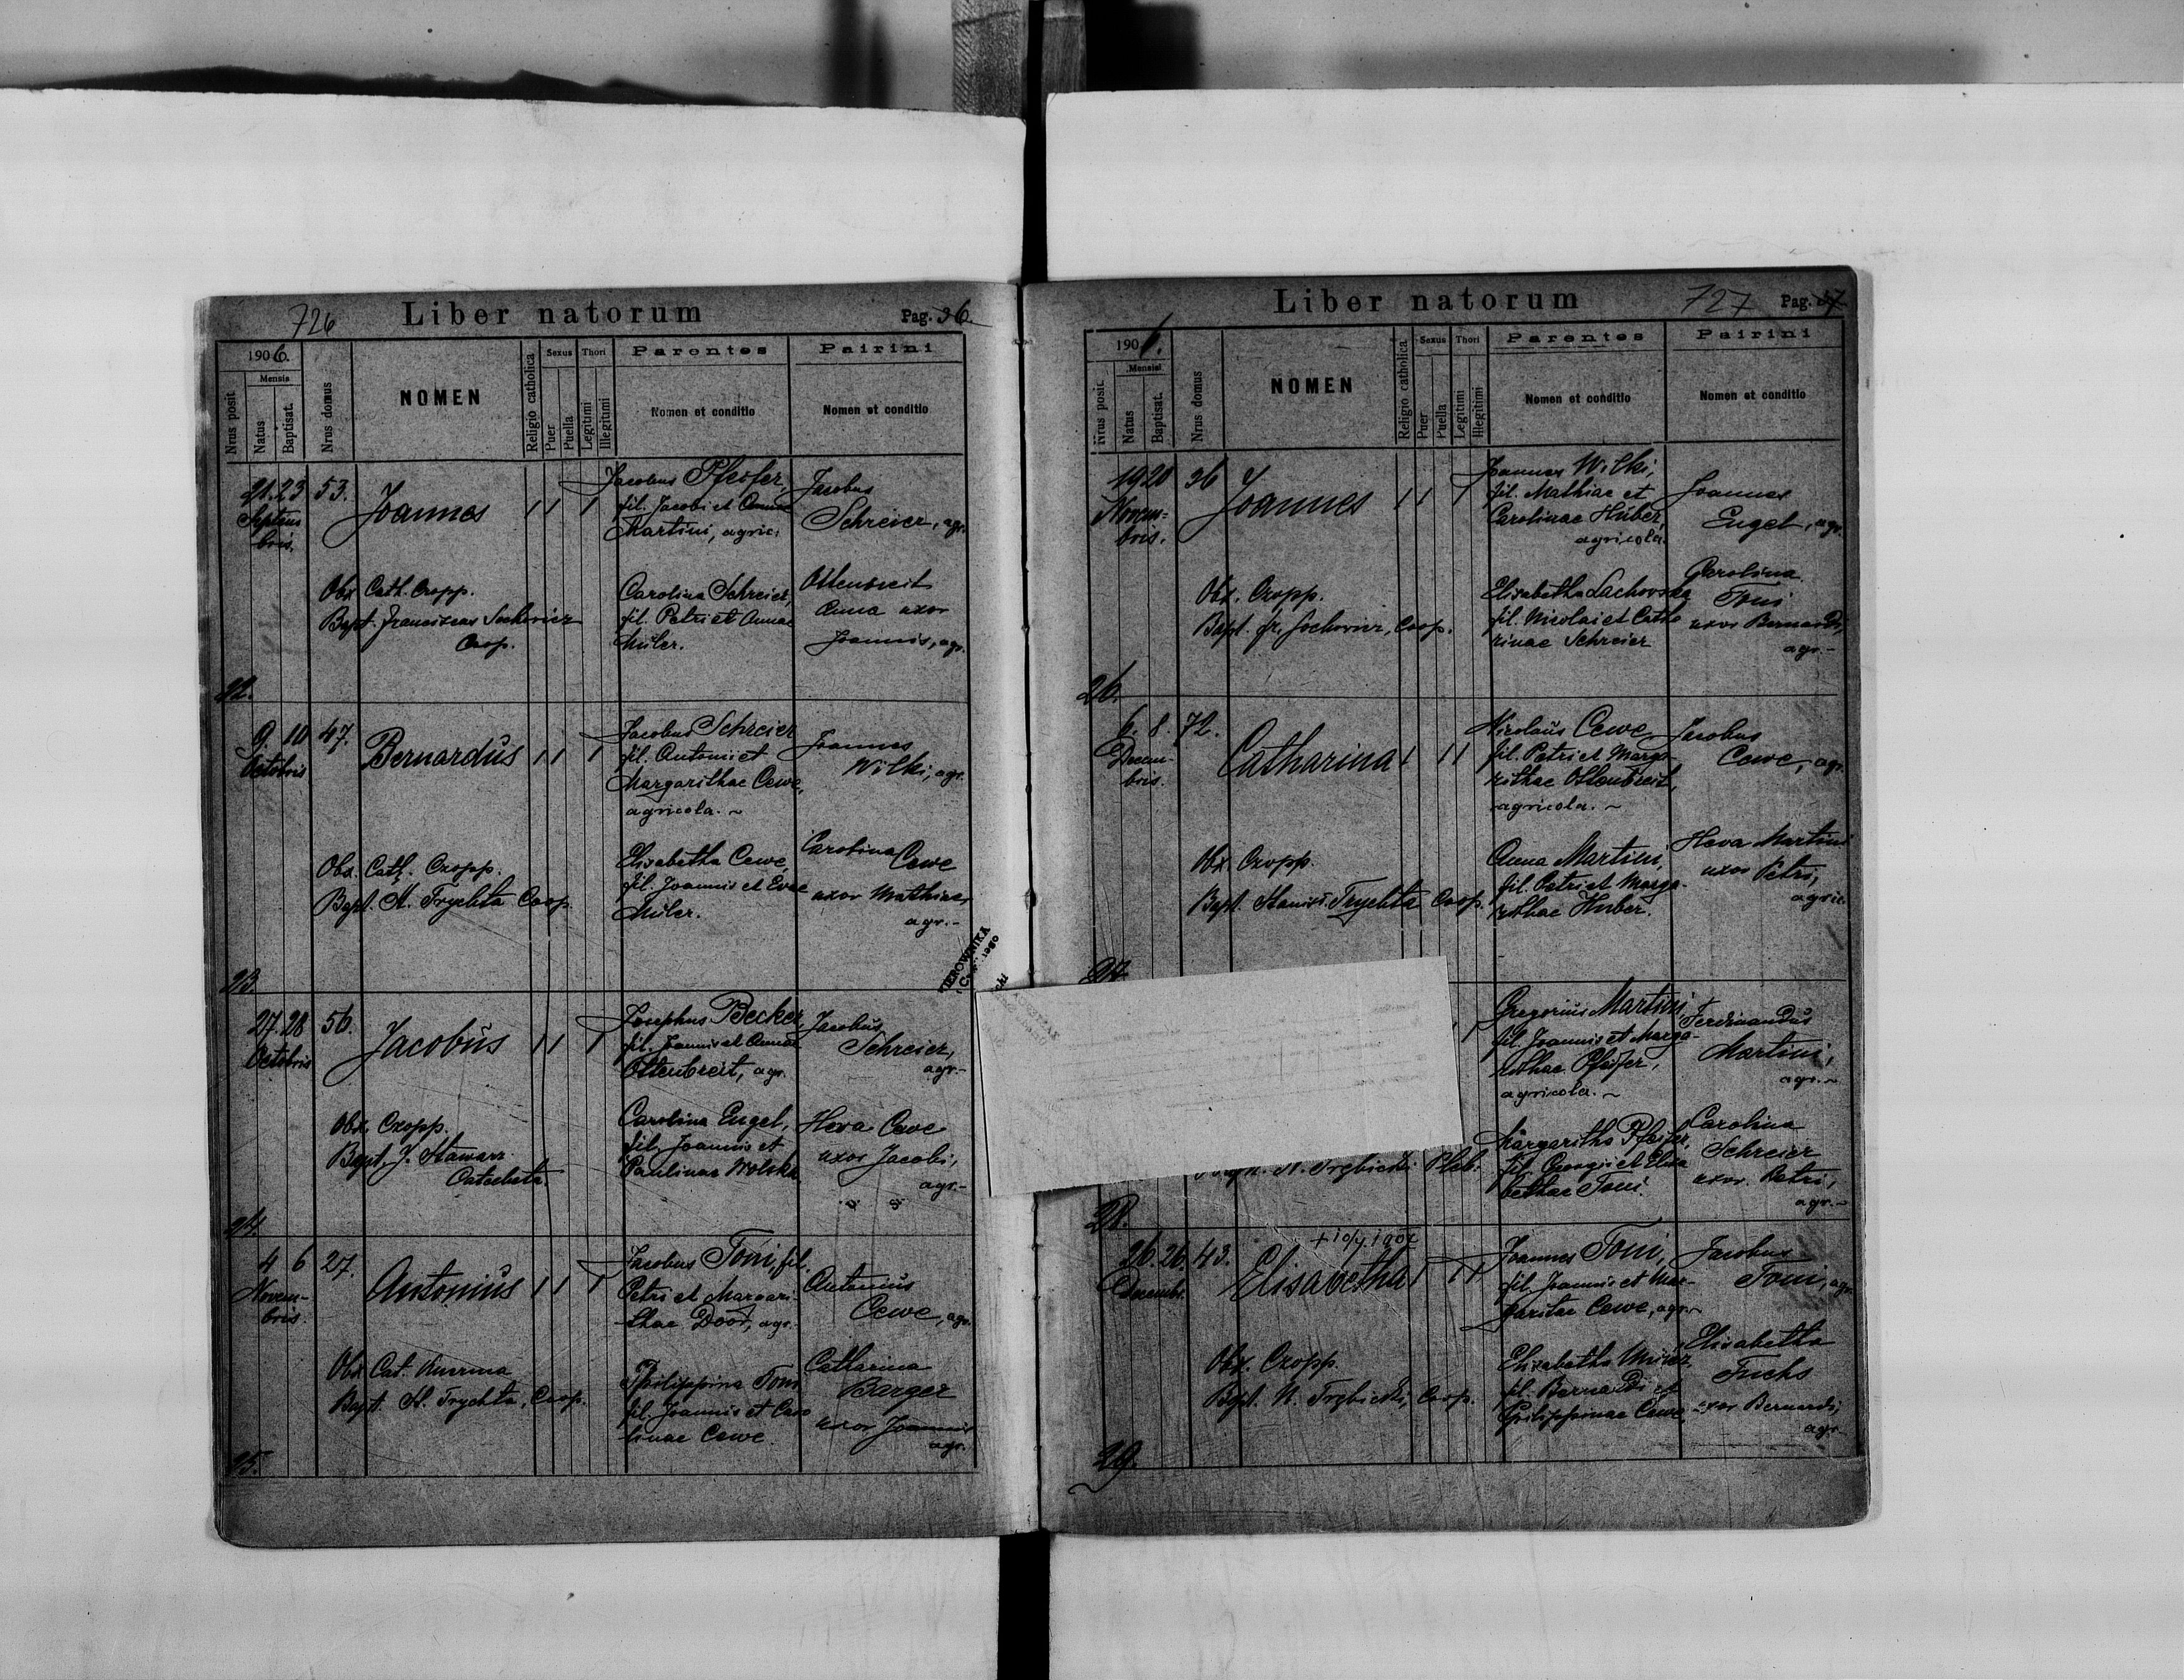 726 Liber natorum Pag. 36.
1906.
Mensis
Nrus posit
Natus
Baptisat.
Nrus domus
NOMEN
Religio catholica
Sexus
Puer
Puella
Thori
Legitumi
Illegitumi
Parentes
Nomen et conditio
Patrini
Nomen et conditio
21. 23 53. Joannes 1 1 1
Septem
bris.
Jacobus Pfeifer,
fil. Jacobi et Annae
Martini, agric.
Jacobus
Schreier, agr.
Obx. Cath. Cropp.
Bapt. Franciscus Sochowicz
Coop.
Carolina Schreier,
fil. Petri et Annae
Müler.
Ottenbreit
Anna uxor
Joannis, agr.
22.
9. 10 47. Bernardus 1 1 1
Octobris
Jacobus Schreier
fil. Antonii et
Margarithae Cewe,
agricola. ~
Joannes
Wilki, agr.
Obx. Cath. Cropp.
Bapt. St. Trychta Coop.
Elisabetha Cewe,
fil. Joannis et Evae
Müler.
Carolina Cewe
uxor Mathiae,
agr.-
23.
27. 28 56. Jacobus 1 1 1
Octobris
Josephus Becker,
fil. Joannis et Annae
Ottenbreit, agr.
Jacobus
Schreier,
agr.-
Obx. Cropp.
Bapt. J. Stawarz
Catecheta.
Carolina Engel,
fil. Joannis et
Paulinae Wolska.
Heva Cewe
uxor Jacobi,
agr.-
24.
4 6 27. Antonius 1 1 1
Novem-
bris.
Jacobus Toni, fil.
Petri et Margari-
thae Door, agr.
Antonius
Cewe, agr.
Obx. Cat.
Bapt. St. Trychta, Coop.
Philippina Toni
fil. Joannis et Caro
linae Cewe.
Catharina
Barger
uxor Joannis
agr.
25.
Liber natorum 727 Pag. 37
1906.
Mensis
Nrus posit.
Natus
Baptisat.
Nrus domus
NOMEN
Religio catholica
Sexus
Puer
Puella
Thori
Legitimi
Illegitimi
Parentes
Nomen et conditio
Patrini
Nomen et conditio
19 20 36 Joannes 1 1 1
Novem-
bris.
Joannes Wilki,
fil. Mathiae et
Carolinae Huber,
agricola.
Joannes
Engel, agr.
Obx. Cropp.
Bapt. Fr. Sochowicz, Coop.
Elisabetha Lachovska
fil. Nicolai et Catha
rinae Schreier
Carolina
Toni
uxor Bernardi,
agr.-
26.
6. 8. 72. Catharina 1 1 1
Decem-
bris.
Nicolaus Cewe,
fil. Petri et Marga-
rithae Ottenbreit,
agricola. ~
Jacobus
Cewe, agr.
Obx. Cropp.
Bapt. Stanisl. Trychta Coop.
Anna Martini,
fil. Petri et Marga-
rithae Huber.
Heva Martini
uxor Petri,
agric.
27.
Gregorius Martini,
fil. Joannis et Marga-
rithae Pfeifer,
agricola. ~
Ferdinandus
Martini,
agr.~
St. Trzbicki Pleb.
Margaritha Pfeifer,
fil. Georgii et Elisa
bethae Toni.
Carolina
Schreier
uxor Petri,
agr.-
28.
26. 26. 43. Elisabetha 1 1 1
Decembr.
Joannes Toni,
fil. Joannis et Mar-
garitae Cewe, agr.
Jacobus
Toni, agr.
Obx. Cropp.
Bapt. N. Trzbicki, Coop.
Elisabetha
fil. Bernardi et
Philippinae Cewe.
Elisabetha
Fuchs
uxor Bernardi,
agr.
29.